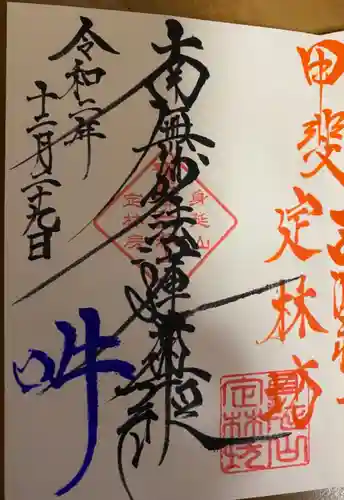 甲斐
定林坊
南無妙法蓮華経
令和二年
十二月二十九日
吽
身延山
定林坊
身延山
定林坊